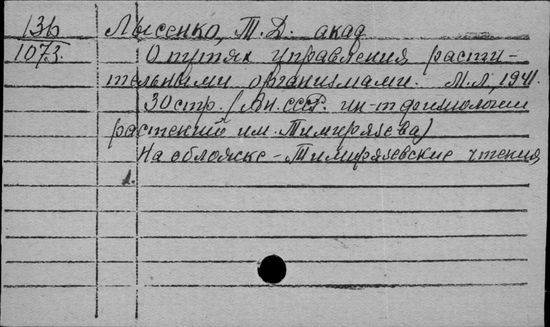 136 Лысенко, Т. Д. акад
1073. О путях управления расти-
тельными организмами. М.Л, 1941.
30 стр. (Ин. СССР. ин-т физиологии
растений им. Тимирязева)
На обложке - Тимирязевские чтения
1.